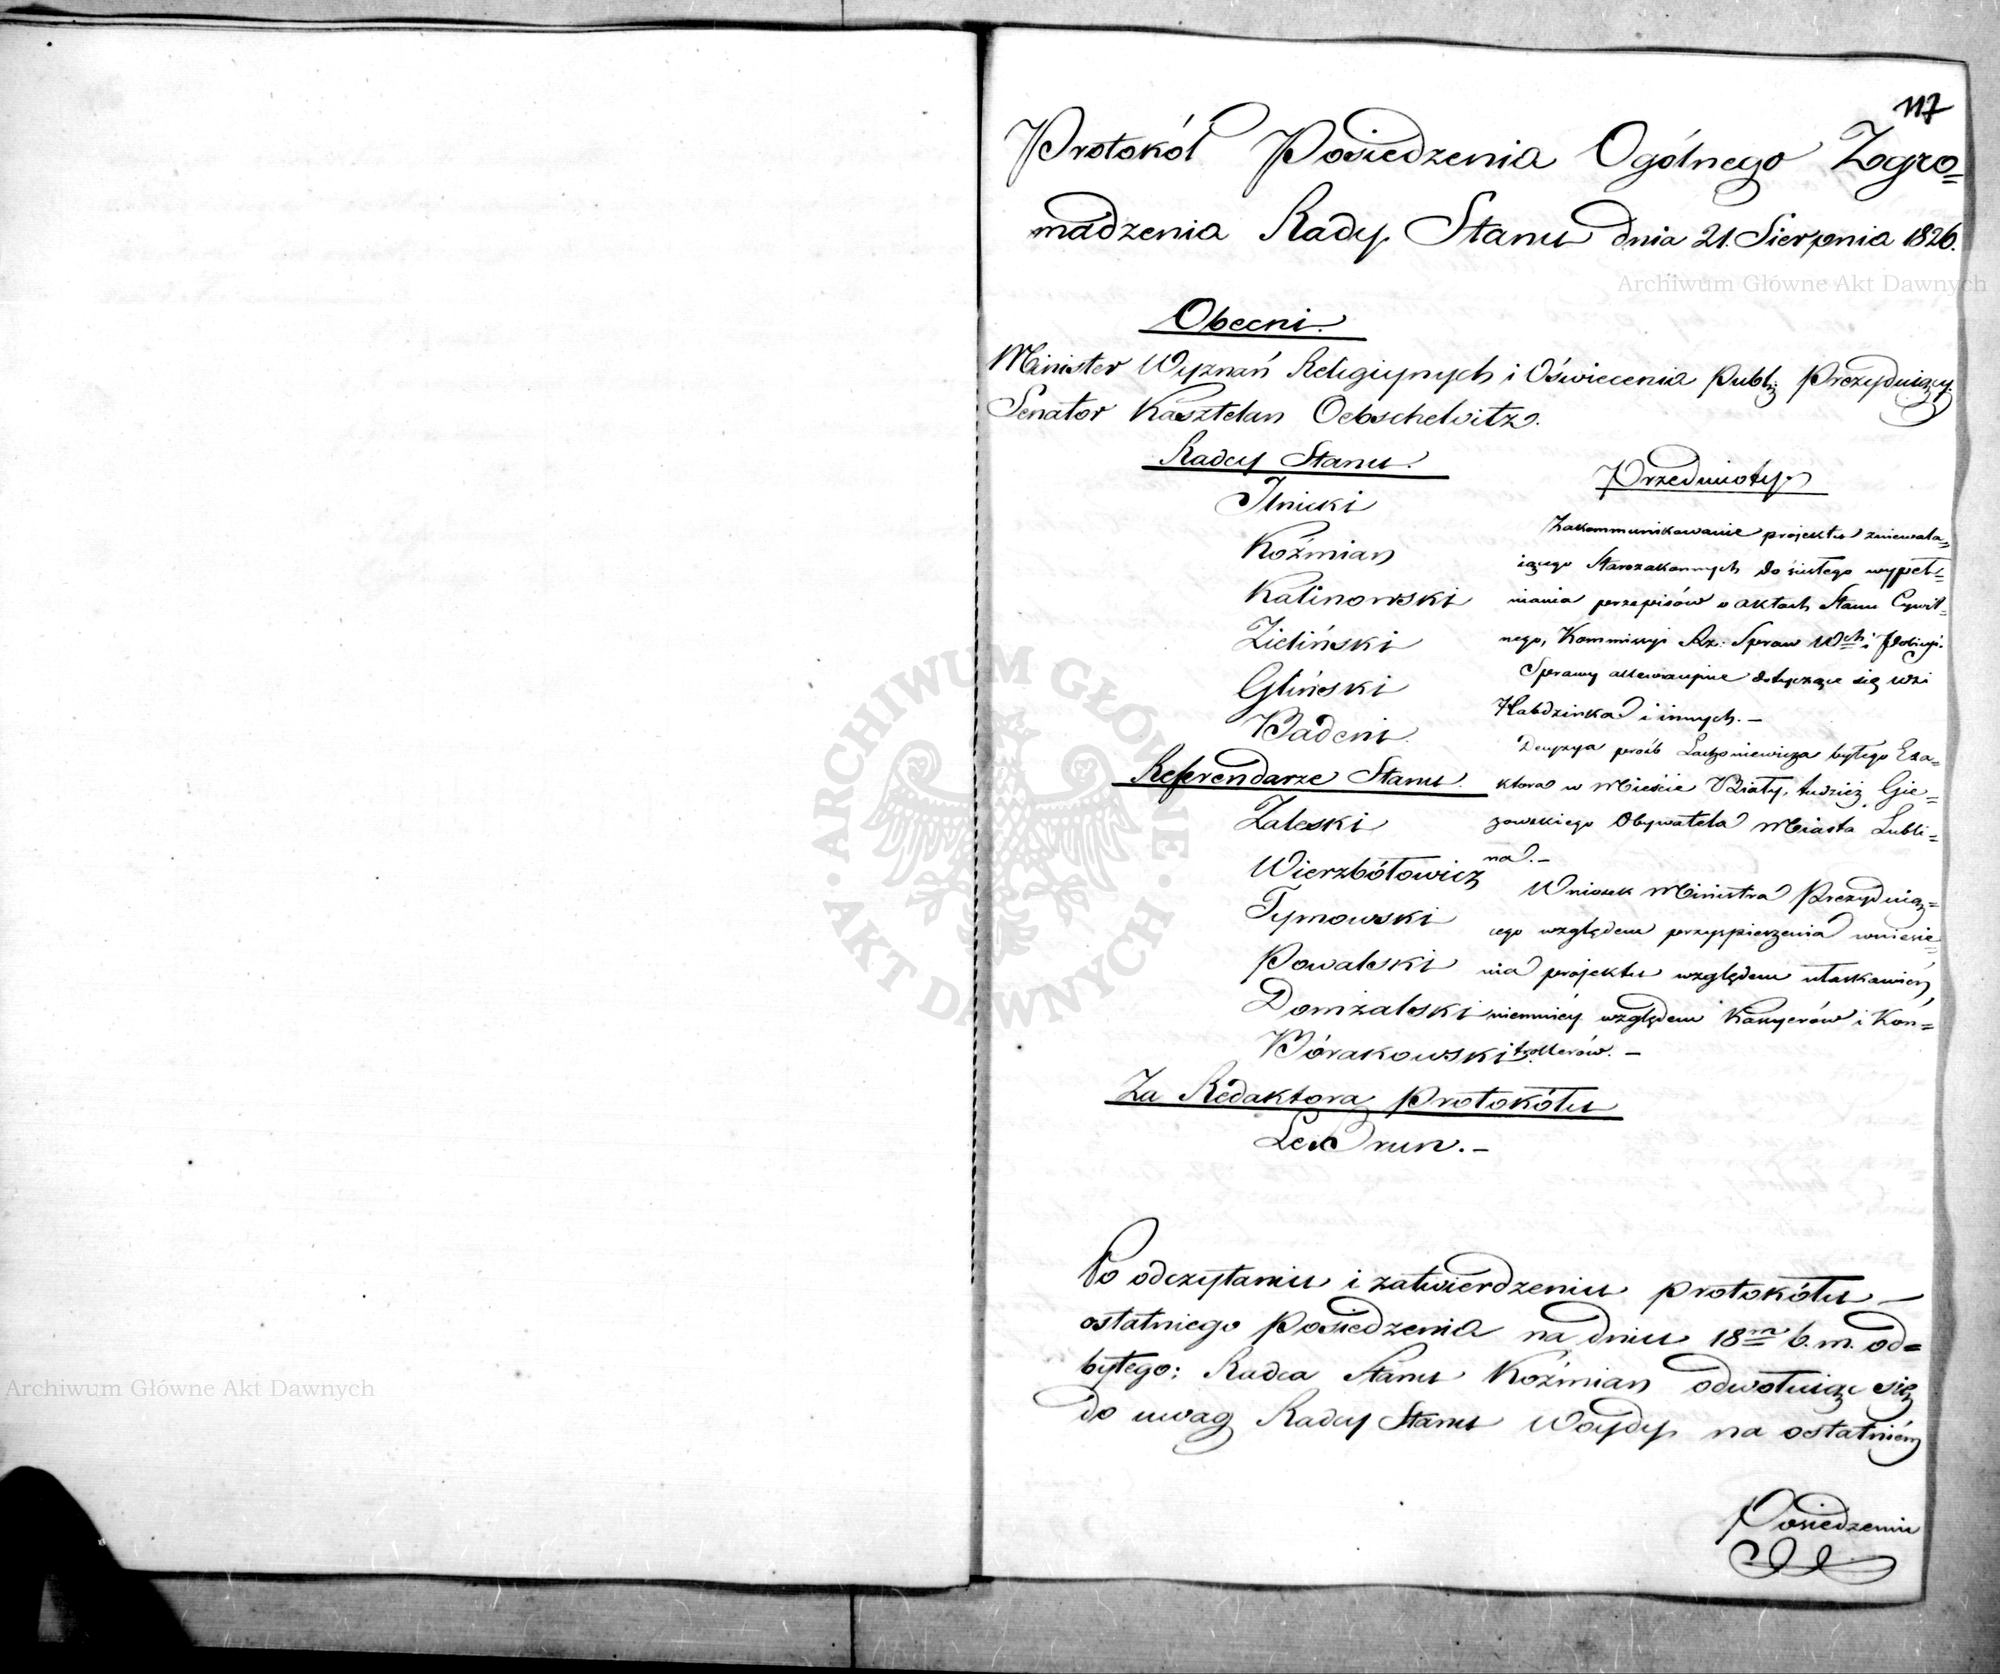 117
Protokół Posiedzenia Ogólnego Zgro=
madzenia Rady Stanu dnia 21. Sierpnia 1826.
Obecni.
Minister Wyznań Religijnych i Oświecenia Publ: Prezydujący.
Senator Kasztelan Oebschelvitz.
Radcy Stanu.
Ilnicki
Koźmian
Kalinowski
Zieliński
Gliński
Badeni
Referendarze Stanu.
Zaleski
Wierzbołowicz
Tymowski
Powalski
Domżalski
Bórakowski
Za Redaktora Protokółu
Le Brun. –
Przedmioty
Zakommunikowanie projektu zniewala=
iącego Starozakonnych do ścisłego wypeł=
niania przepisów o aktach Stanu Cywil=
nego, Kommissyi Rz: Spraw Wch i Policyi.
Sprawy dotyczące się wsi
Habdzinka i innych. –
Decyzya prośb byłego Exa=
ktora w Mieście Biały, tudzież Gie=
zowskiego Obywatela Miasta Lubli=
na. –
Wniosek Ministra Prezyduią=
cego względem przyspieszenia wniesie=
nia projektu względem ułaskawień,
niemniéj względem Kassyerów i Kon=
trollerów. –
Po odczytaniu i zatwierdzeniu protokółu –
ostatniego Posiedzenia na dniu 18m b. m. od=
bytego: Radca Stanu Koźmian odwołuiąc się
do uwag Radcy Stanu Woydy na ostatniém
Posiedzeniu
Archiwum Główne Akt Dawnych
ARCHIWUM GŁÓWNE
AKT DAWNYCH
Archiwum Główne Akt Dawnych